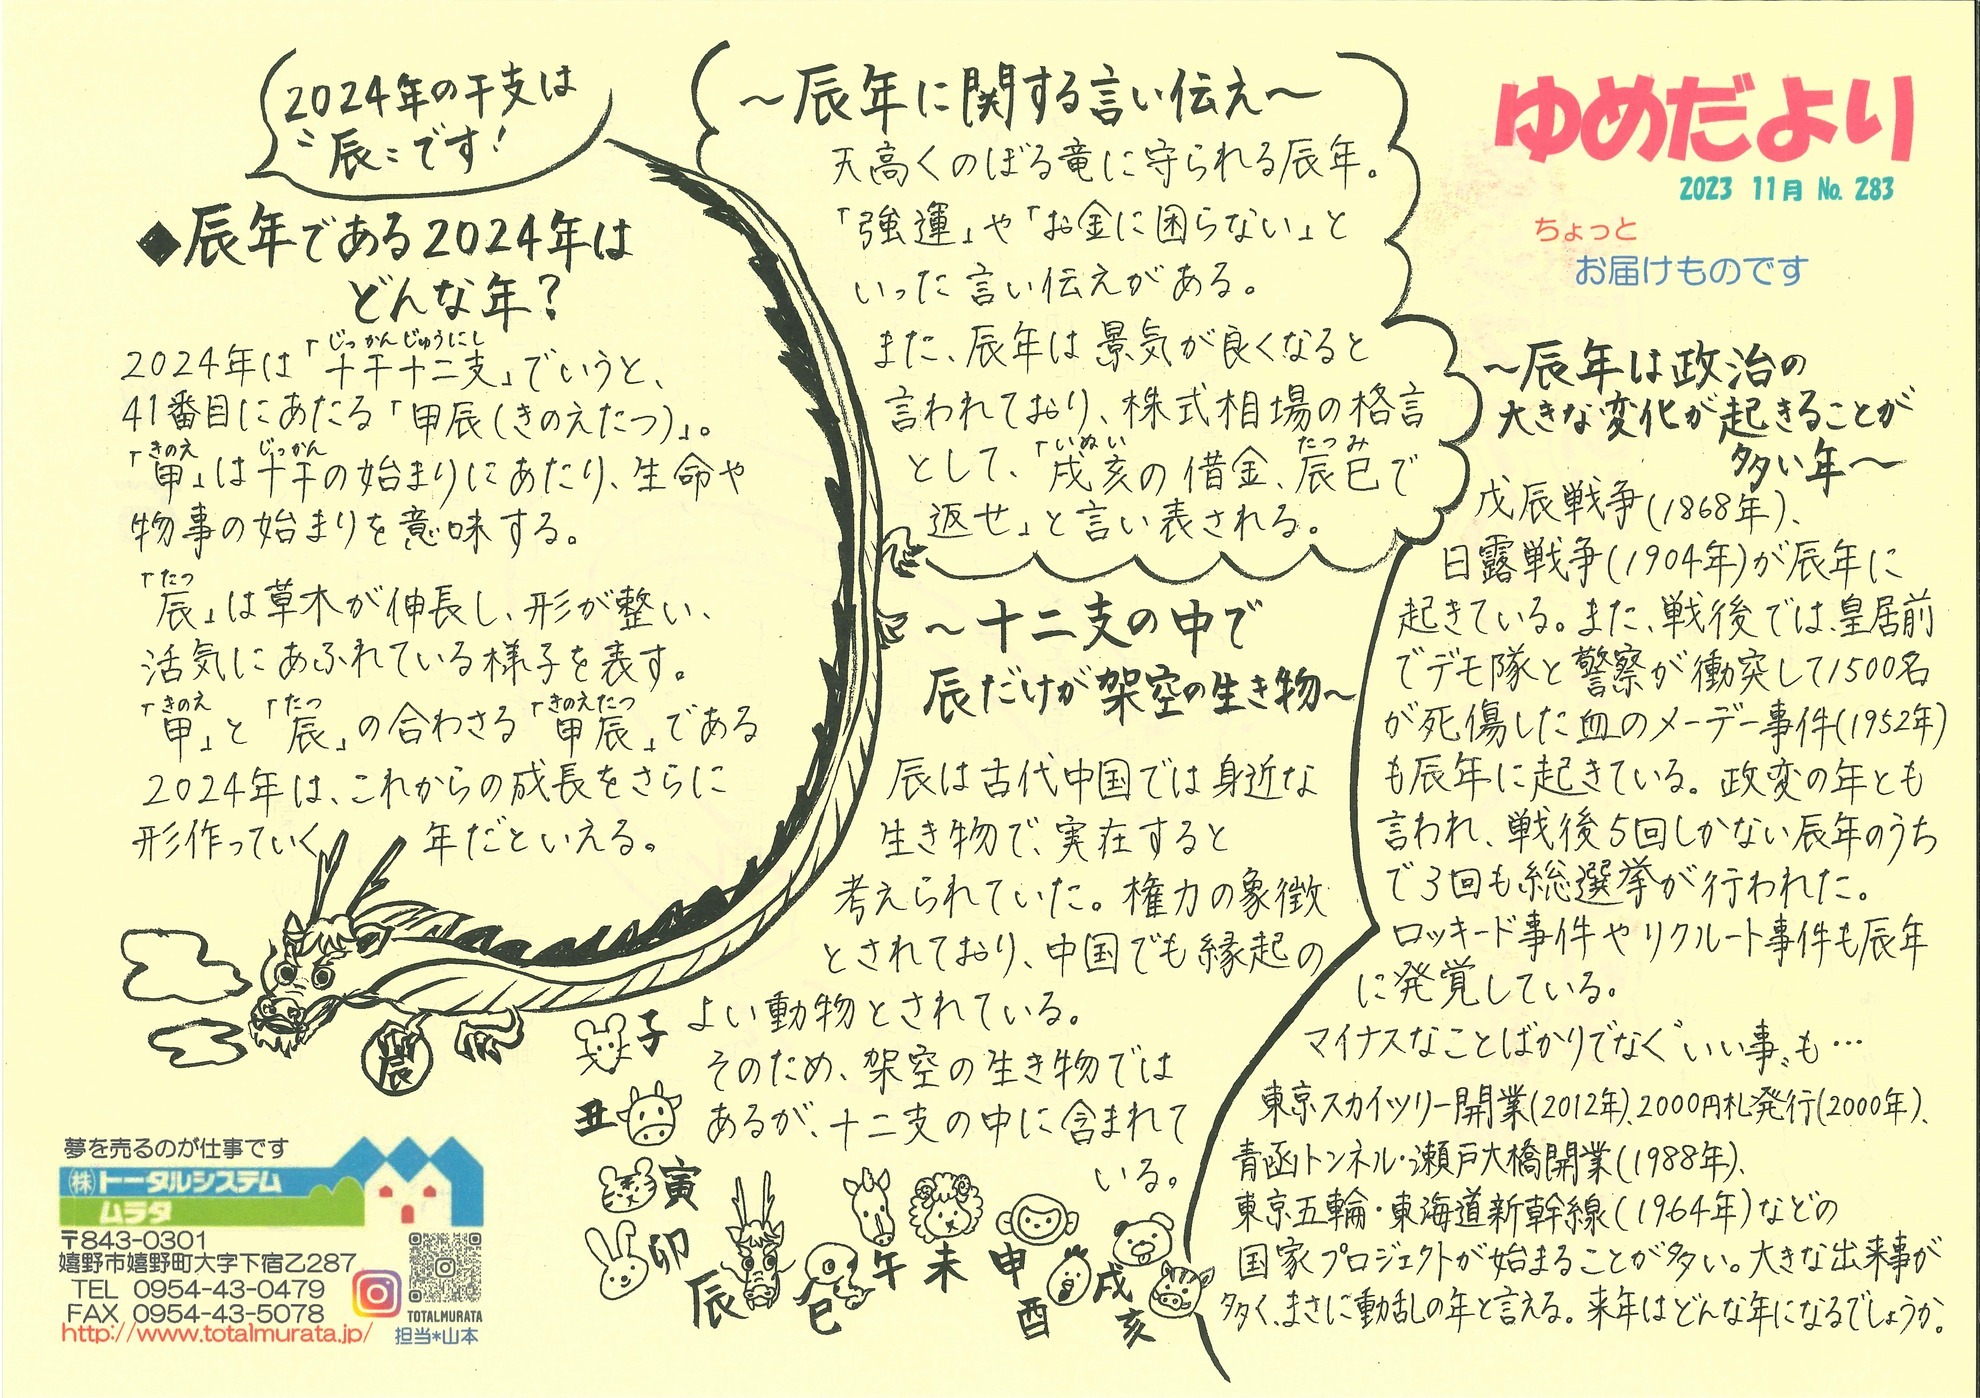 ゆめだより
2023 11月 No. 283
ちょっと
お届けものです
2024年の干支は
〝辰〟です!
◆辰年である2024年は
どんな年?
じっかんじゅうにし
2024年は「十干十二支」でいうと、
41番目にあたる「甲辰(きのえたつ)」。
きのえ じっかん
「甲」は十干の始まりにあたり、生命や
物事の始まりを意味する。
たつ
「辰」は草木が伸長し、形が整い、
活気にあふれている様子を表す。
きのえ たつ きのえたつ
「甲」と「辰」の合わさる「甲辰」である
2024年は、これからの成長をさらに
形作っていく 年だといえる。
辰
~辰年に関する言い伝え~
天高くのぼる竜に守られる辰年。
「強運」や「お金に困らない」と
いった言い伝えがある。
また、辰年は景気が良くなると
言われており、株式相場の格言
いぬい たつみ
として、「戌亥の借金、辰巳で
返せ」と言い表される。
~十二支の中で
辰だけが架空の生き物~
辰は古代中国では身近な
生き物で、実在すると
考えられていた。権力の象徴
とされており、中国でも縁起の
よい動物とされている。
そのため、架空の生き物では
あるが、十二支の中に含まれて
いる。
子
丑
寅
卯
辰
巳
午
未
申
酉
戌
亥
~辰年は政治の
大きな変化が起きることが
多い年~
戊辰戦争(1868年)、
日露戦争(1904年)が辰年に
起きている。また、戦後では、皇居前
でデモ隊と警察が衝突して1500名
が死傷した血のメーデー事件(1952年)
も辰年に起きている。政変の年とも
言われ、戦後5回しかない辰年のうち
で3回も総選挙が行われた。
ロッキード事件やリクルート事件も辰年
に発覚している。
マイナスなことばかりでなく〝いい事〟も…
東京スカイツリー開業(2012年)、2000円札発行(2000年)、
青函トンネル・瀬戸大橋開業(1988年)、
東京五輪・東海道新幹線(1964年)などの
国家プロジェクトが始まることが多い。大きな出来事が
多く、まさに動乱の年と言える。来年はどんな年になるでしょうか。
夢を売るのが仕事です
(株)トータルシステム
ムラタ
〒843-0301
嬉野市嬉野町大字下宿乙287
TEL 0954-43-0479
FAX 0954-43-5078
http://www.totalmurata.jp/
TOTALMURATA
担当*山本